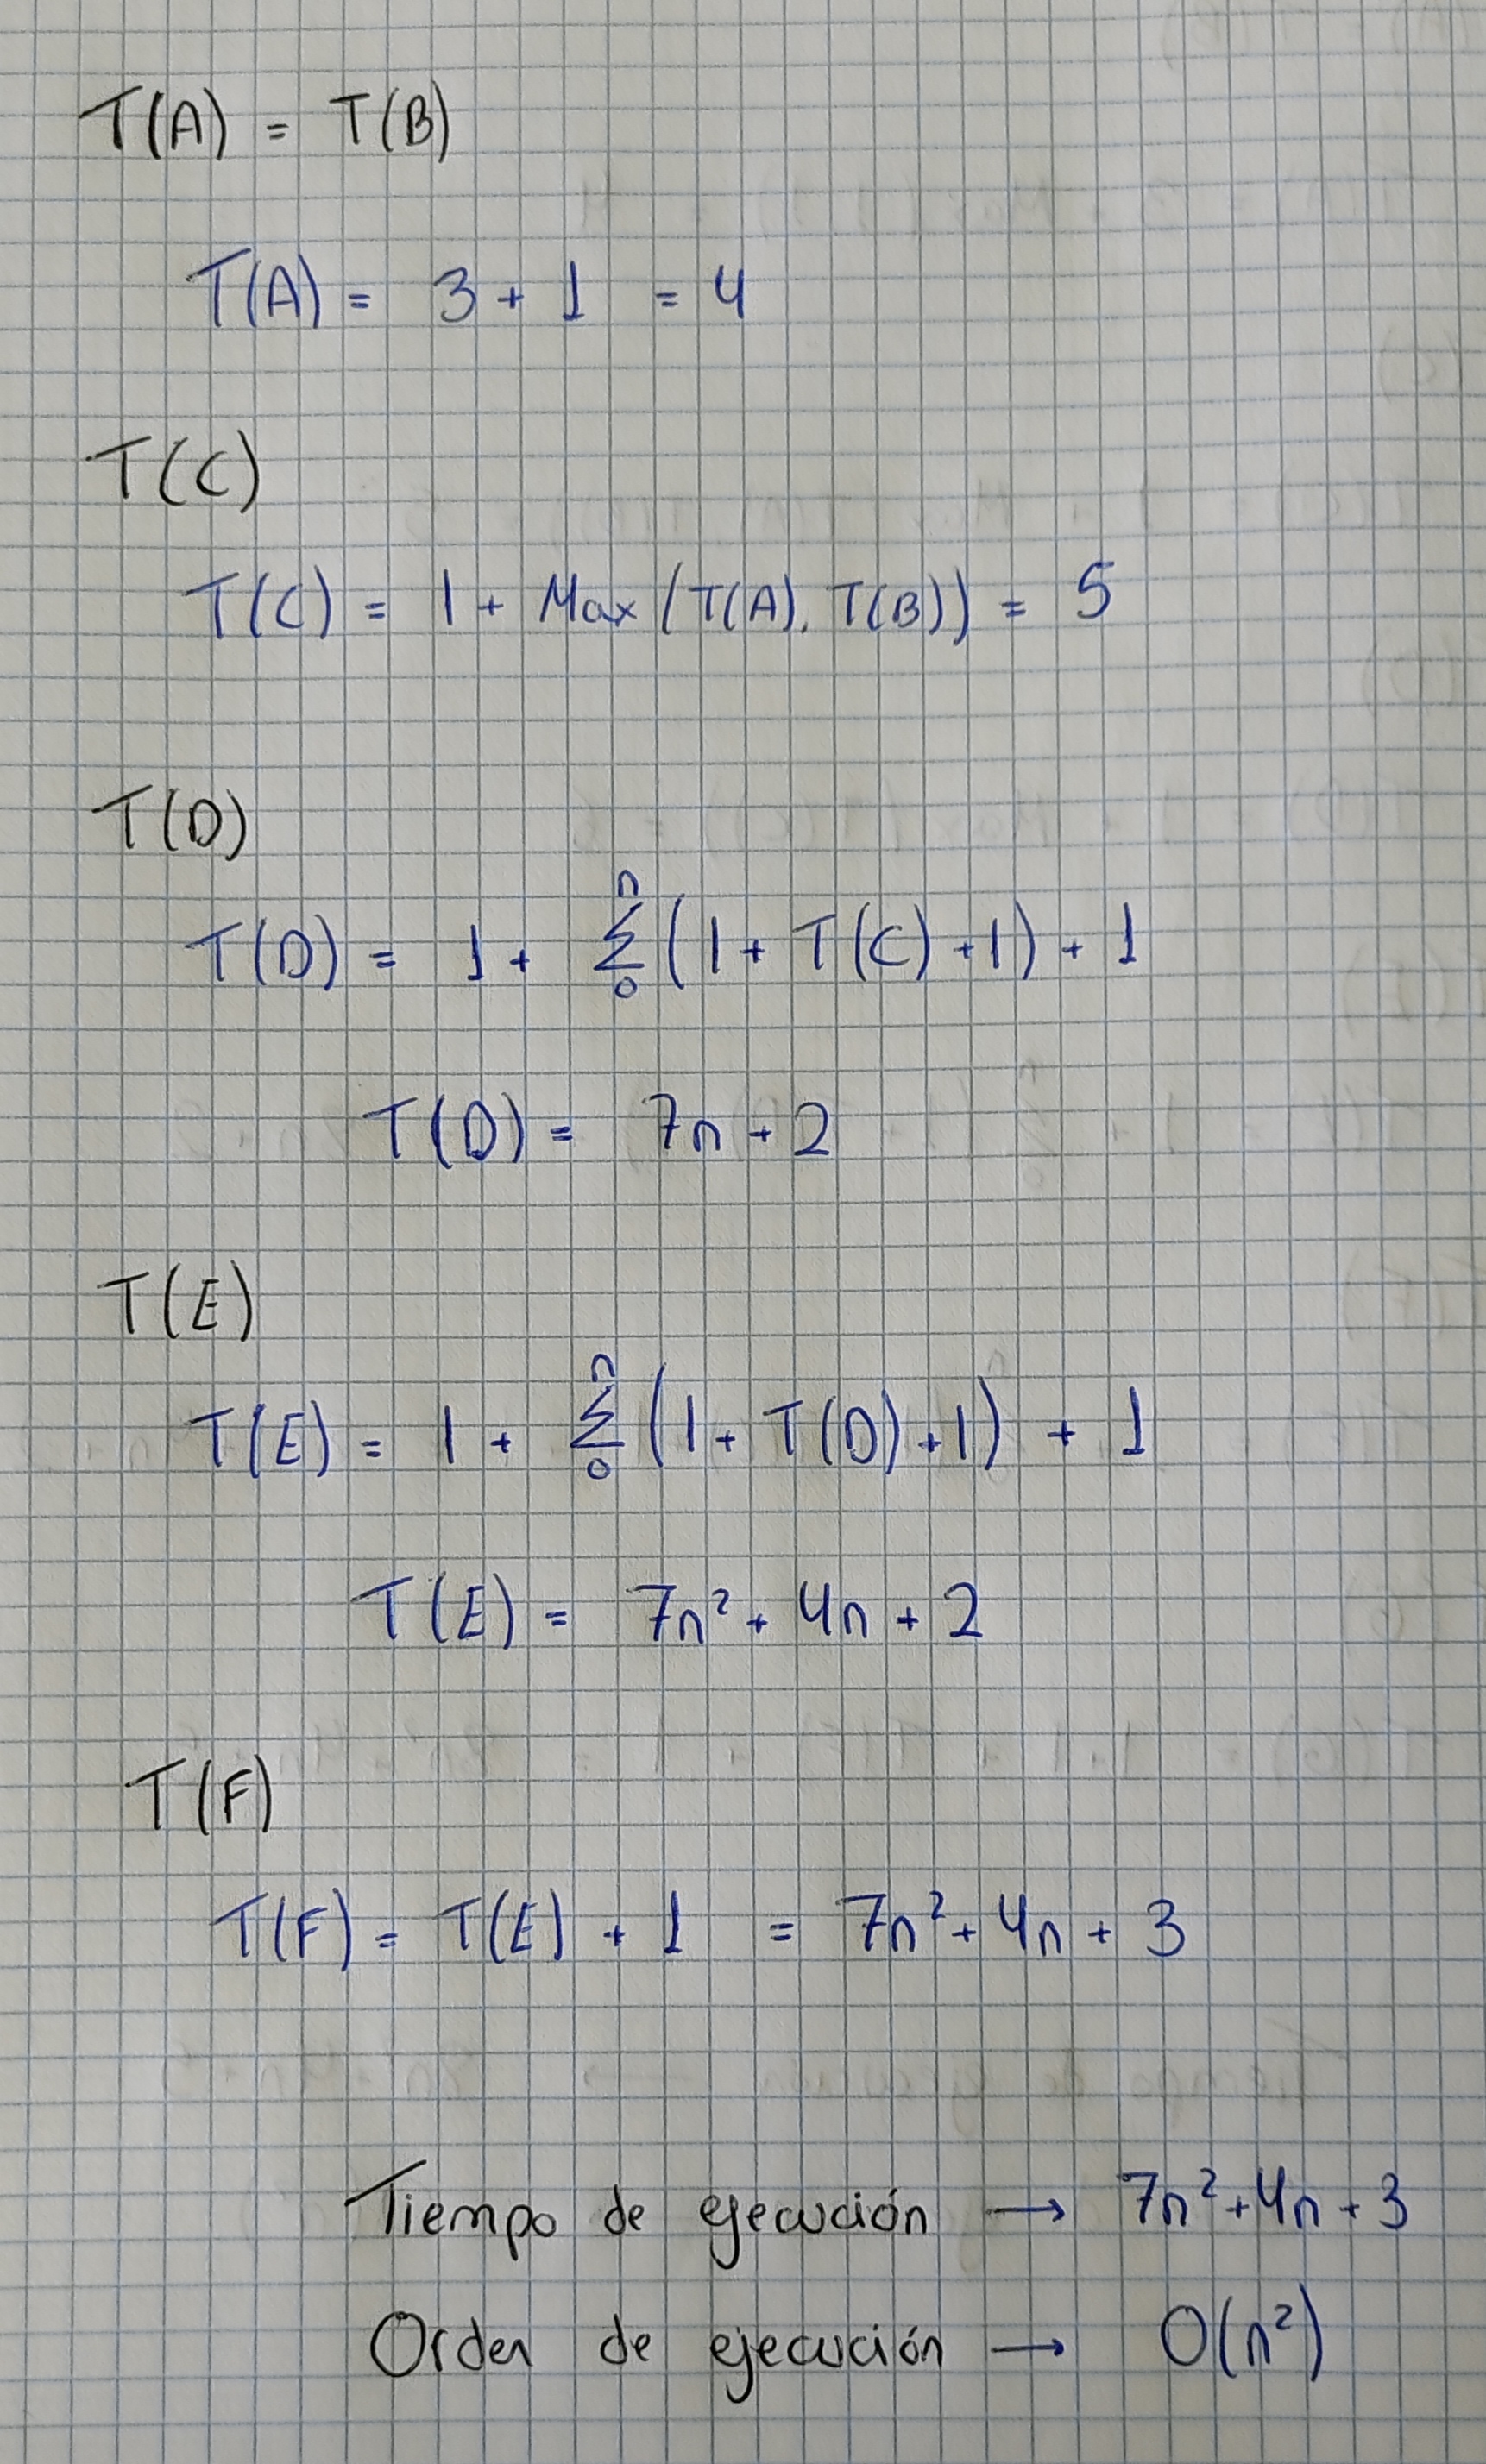 T(A) = T(B)
T(A) = 3 + 1 = 4
T(C)
T(C) = 1 + Max (T(A), T(B)) = 5
T(D)
T(D) = 1 + Σ₀ⁿ (1 + T(C) + 1) + 1
T(D) = 7n + 2
T(E)
T(E) = 1 + Σ₀ⁿ (1 + T(D) + 1) + 1
T(E) = 7n² + 4n + 2
T(F)
T(F) = T(E) + 1 = 7n² + 4n + 3
Tiempo de ejecución → 7n² + 4n + 3
Orden de ejecución → O(n²)